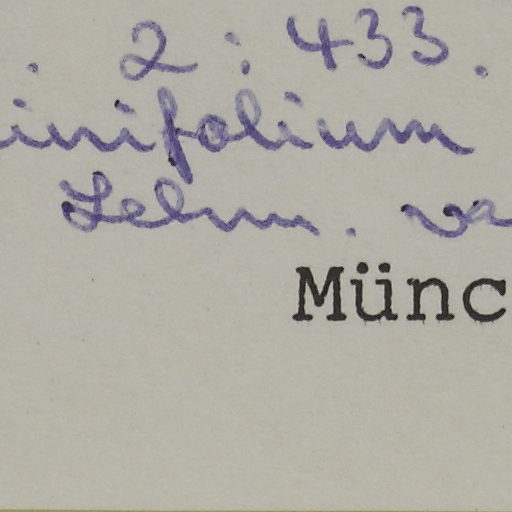 . 2 : 433.
inifolium
Lehm. va
Münc